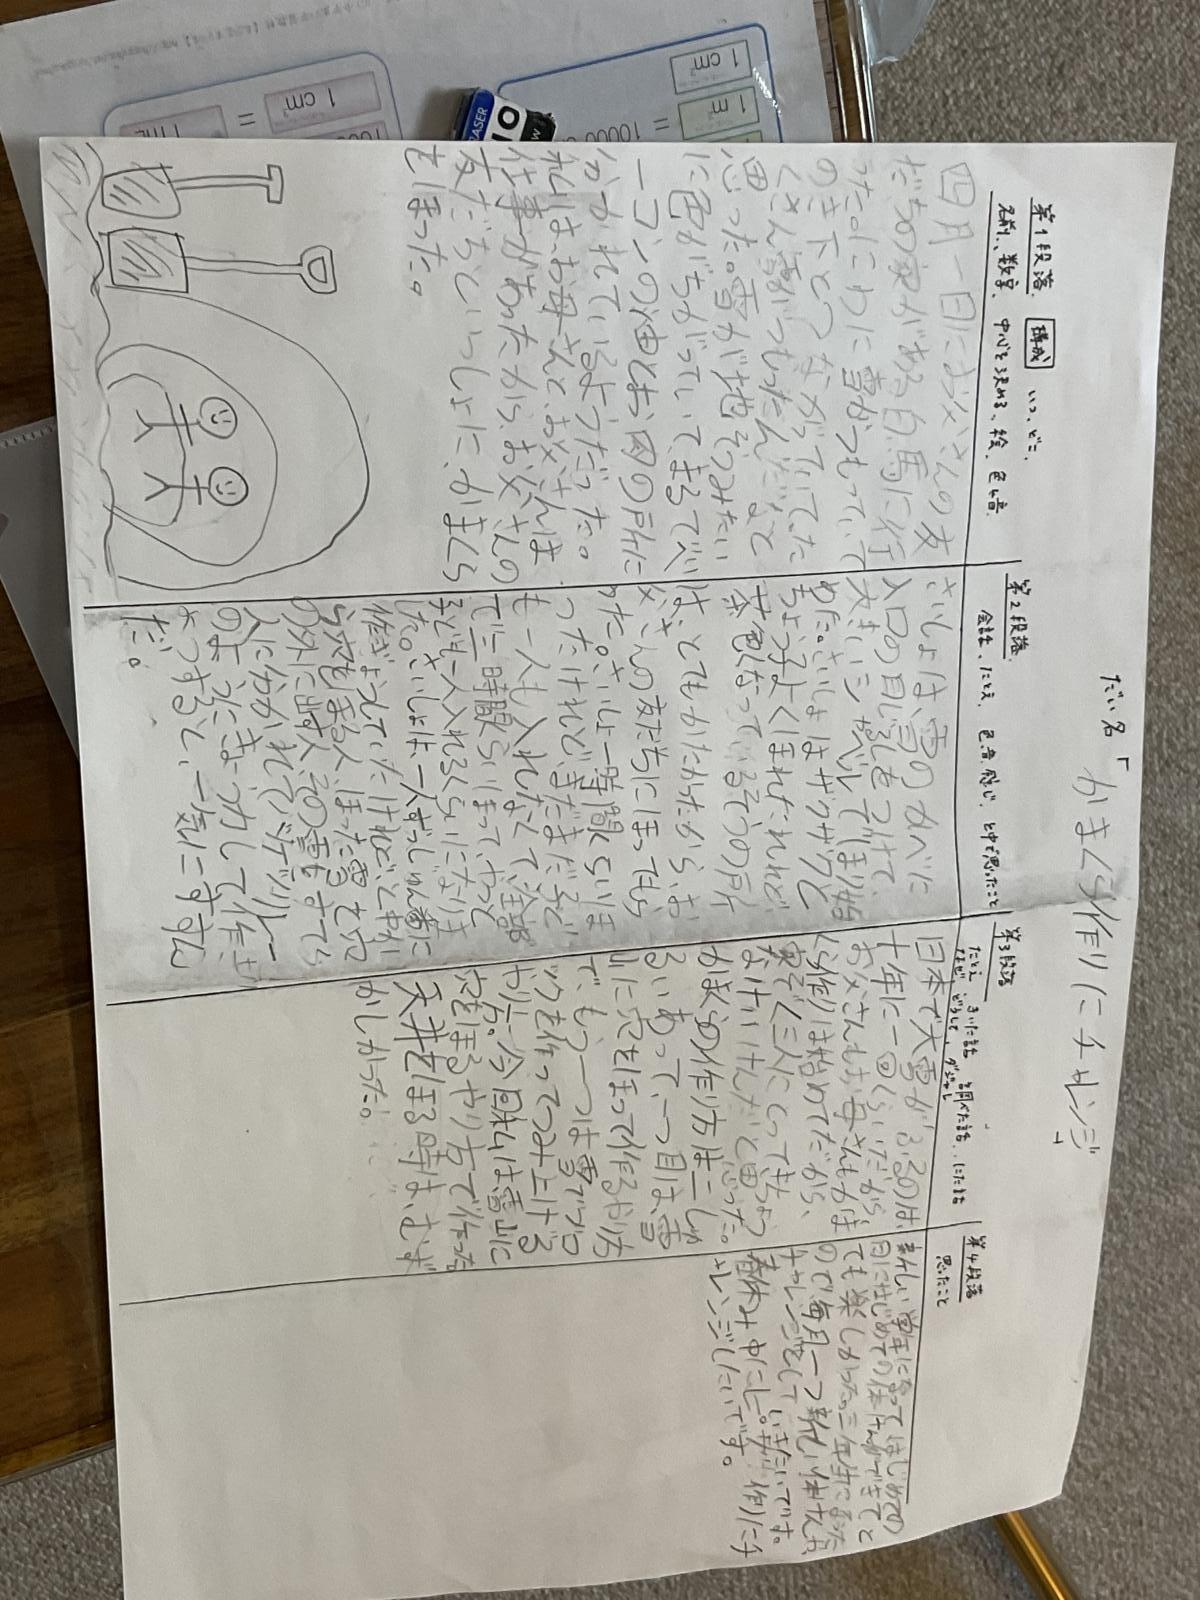 だい名「かまくら作りにチャレンジ」
第1段落 構成 いつ、どこ、
名前、数字、中心を決める、絵、色、音
四月一日にお父さんの友
だちの家がある白馬に行
った。にわに雪がつもっていて
のき下とつながっていてた
くさん雪がつもったんだなと
思った。雪が地そうみたい
に色がちがっていてまるでベ
ーコンの油とお肉の所に
分かれているようだった。
私は、お母さんと、お父さんは
仕事があったから、お父さんの
友だちといっしょに、かまくら
をほった。
第2段落
会話、たとえ、色、音、感じ、と中で思ったこと
さいしょは、雪のかべに
入口の目じるしをつけて、
大きいシャベルでほり始
めた。さいしょはザクザクと
ちょうしよくほれたけれど、
茶色くなっているそうの所
は、とてもかたかったから、お
父さんの友だちにほっても
らった。さいしょ一時間くらいほ
ったけれど、まだまだ子ど
も一人も入れなくて、全部
で三時間くらいほって、やっと
子ども二人入れるくらいになりま
した。さいしょは、一人ずつじゅん番に
作ぎょうしていたけれど、と中か
ら穴をほる人、ほった雪を穴
の外に出す人、その雪をすてる
人に分かれて、バケツリレー
のようにきょう力して作ぎ
ょうすると、一気にすすん
だ。
第3段落
たとえ きいた話 調べた話、にた話
なぜ どうして、ダジャレ
日本で大雪がふるのは、
十年に一回くらいだから、
お父さんもお母さんもかま
くら作りは始めてだから、
家ぞく三人にとってき
ちょうなけいけんだと思った。
かまくらの作り方は二しゅ
るいあって、一つ目は、雪
山に穴をほって作るやり方
で、もう一つは雪でブロ
ックを作ってつみ上げる
やり方。今回私は雪山に
穴をほるやり方で作った。
天井をほる時は、むず
かしかった。
第4段落
思ったこと
新しい学年になってはじめての
日にはじめての体けんができてと
ても楽しかった。三年生になった
ので毎月一つ新しい体けんに
チャレンジをしていきたいです。
春休み中に 作りにチ
ャレンジしたいです。
1 cm²
1 m²
=
10000
1 cm²
=
ERASER